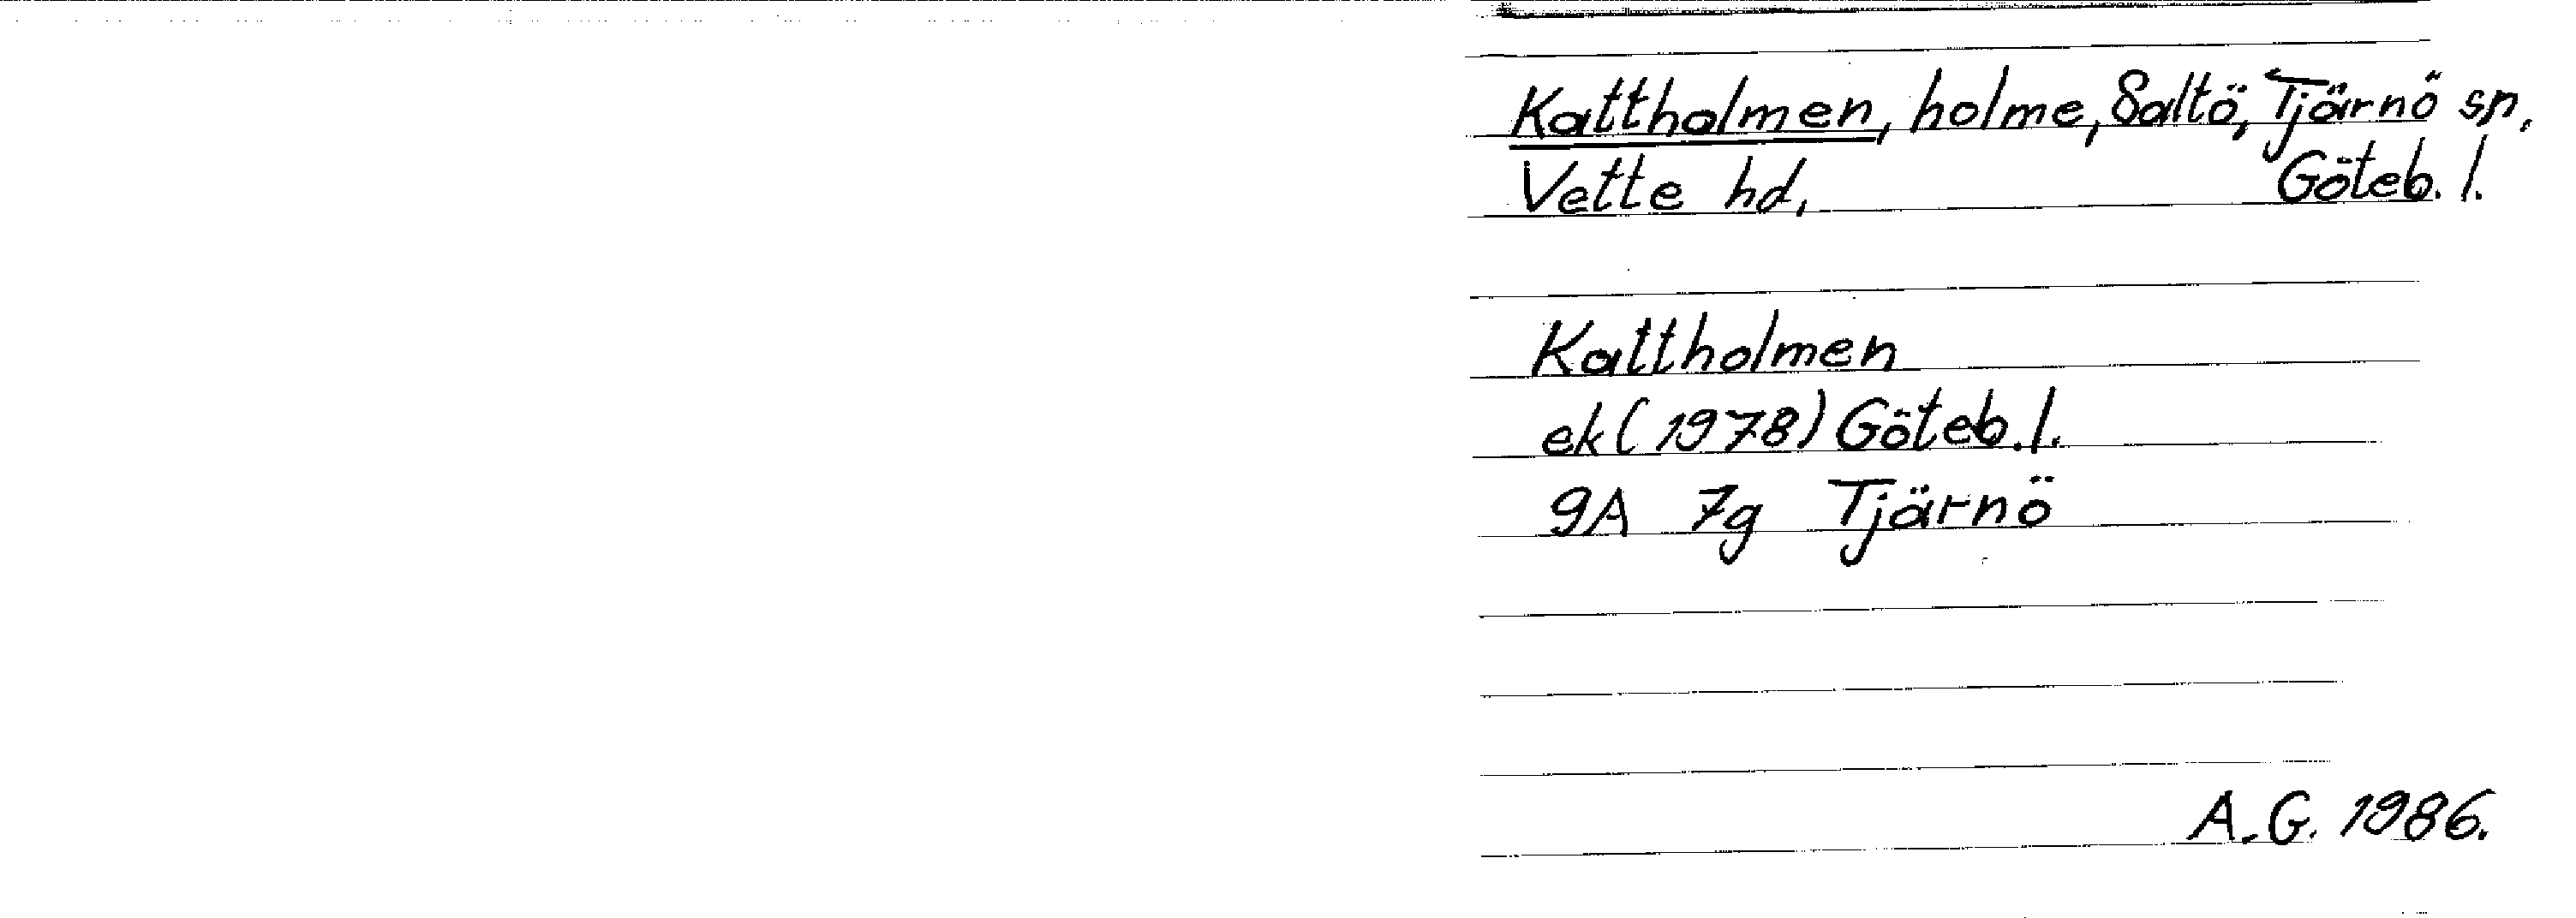 Kattholmen, holme, Saltö, Tjärnö sn,
Vette hd, Göteb. l.
Kattholmen
ek (1978) Göteb. l.
9A 7g Tjärnö
A.G. 1986.